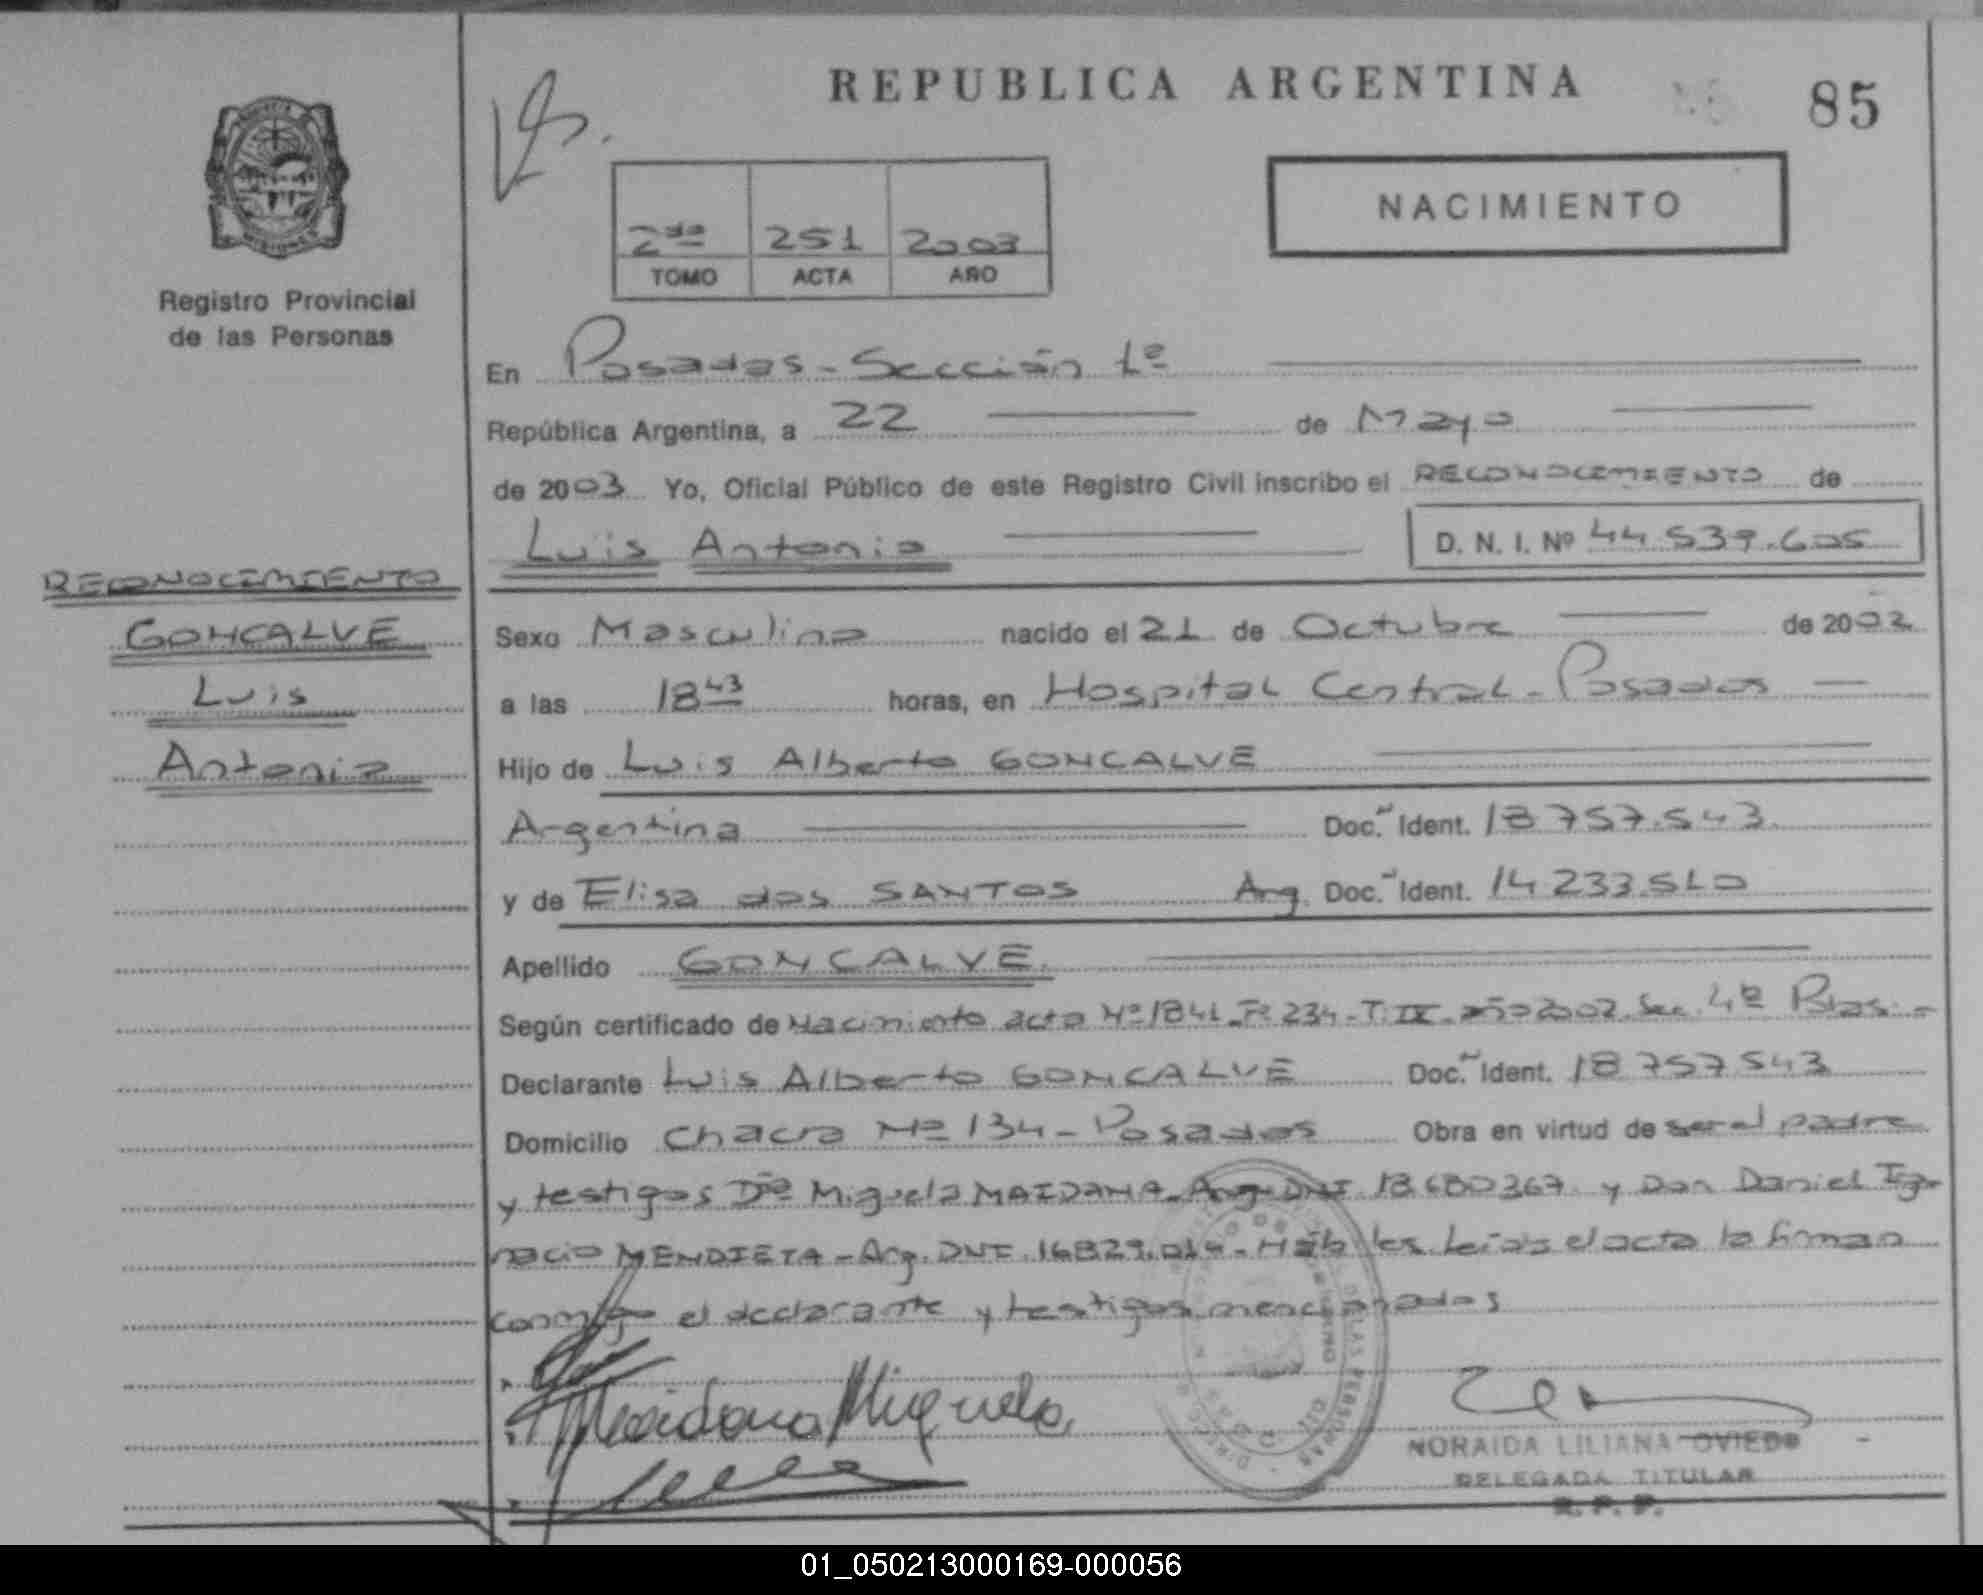 REPUBLICA ARGENTINA
85
NACIMIENTO
2da 251 2003
TOMO ACTA AÑO
PROVINCIA
MISIONES
Registro Provincial
de las Personas
En Posadas - Sección 1ª
República Argentina, a 22 de Mayo
de 2003 Yo, Oficial Público de este Registro Civil inscribo el RECONOCIMIENTO de
Luis Antonio D. N. I. Nº 44 539.605
RECONOCIMIENTO
GONCALVE
Luis
Antonio
Sexo Masculino nacido el 21 de Octubre de 2002
a las 18 43 horas, en Hospital Central - Posadas
Hijo de Luis Alberto GONCALVE
Argentina Doc. Ident. 18 757.543.
y de Elisa dos SANTOS Arg. Doc. Ident. 14 233.510
Apellido GONCALVE
Según certificado de Nacimiento acta Nº 1841 Fº 234 - T. IX - año 2002. Sec. 4ª Pdas. -
Declarante Luis Alberto GONCALVE Doc. Ident. 18 757 543
Domicilio Chacra Nº 134 - Posadas Obra en virtud de ser el padre
y testigos Dña Miguela MAIDANA - Arg. DNI 18.680367 y Don Daniel Ig-
nacio MENDIETA - Arg. DNI. 16829.014 - les leida el acta la firman
conmigo el declarante y testigos mencionados
Maidana Miguela
NORAIDA LILIANA OVIEDO
DELEGADA TITULAR
R. P. P.
01_050213000169-000056